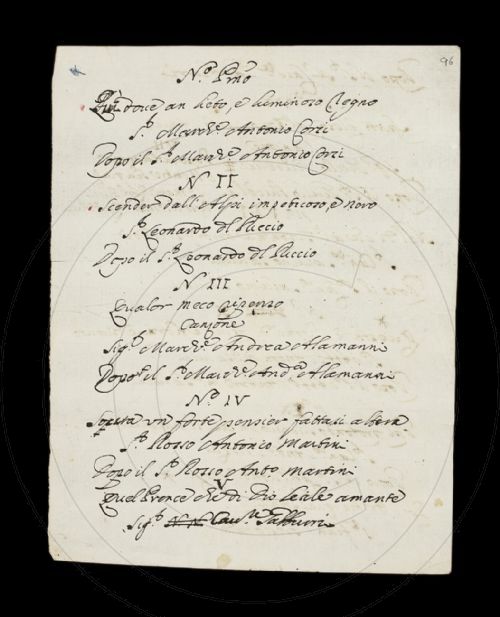 96
N.º Pmo
Qui dove an lieto, e luminoso Regno
S.r Marche Antonio Corsi
Dopo il S.r Marche Antonio Corsi
N II
Scender dall' Alpi impetuoso, e nero
S.r Leonardo del Riccio
Dopo il S.r Leonardo del Riccio
N III
Qualor meco ripenso
Canzone
Sig.r Marche Andrea Alamanni
Dopo il S.r Marche And.a Alamanni
N.º IV
un forte pensier fattasi altera
S.r Rosso Antonio Martini
Dopo il S.r Rosso Anto. Martini
V
Quel Prence che di Dio leale amante
Sig.r N N Cav.re